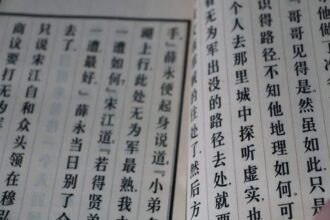 『哥哥见得是。然虽如此，只是
识得路径，不知他地理如何。可
个人去那里城中探听虚实，也
有无为军出没的路径去处，就要
贼的住处了，然后方
手。』薛永便起身说道：『小弟
湖上行，此处无为军最熟。我
一遭如何？』宋江道：『若得贤弟
一遭，最好。』薛永当日别了
去了。
只说宋江自和众头领在穆弘
商议要打无为军